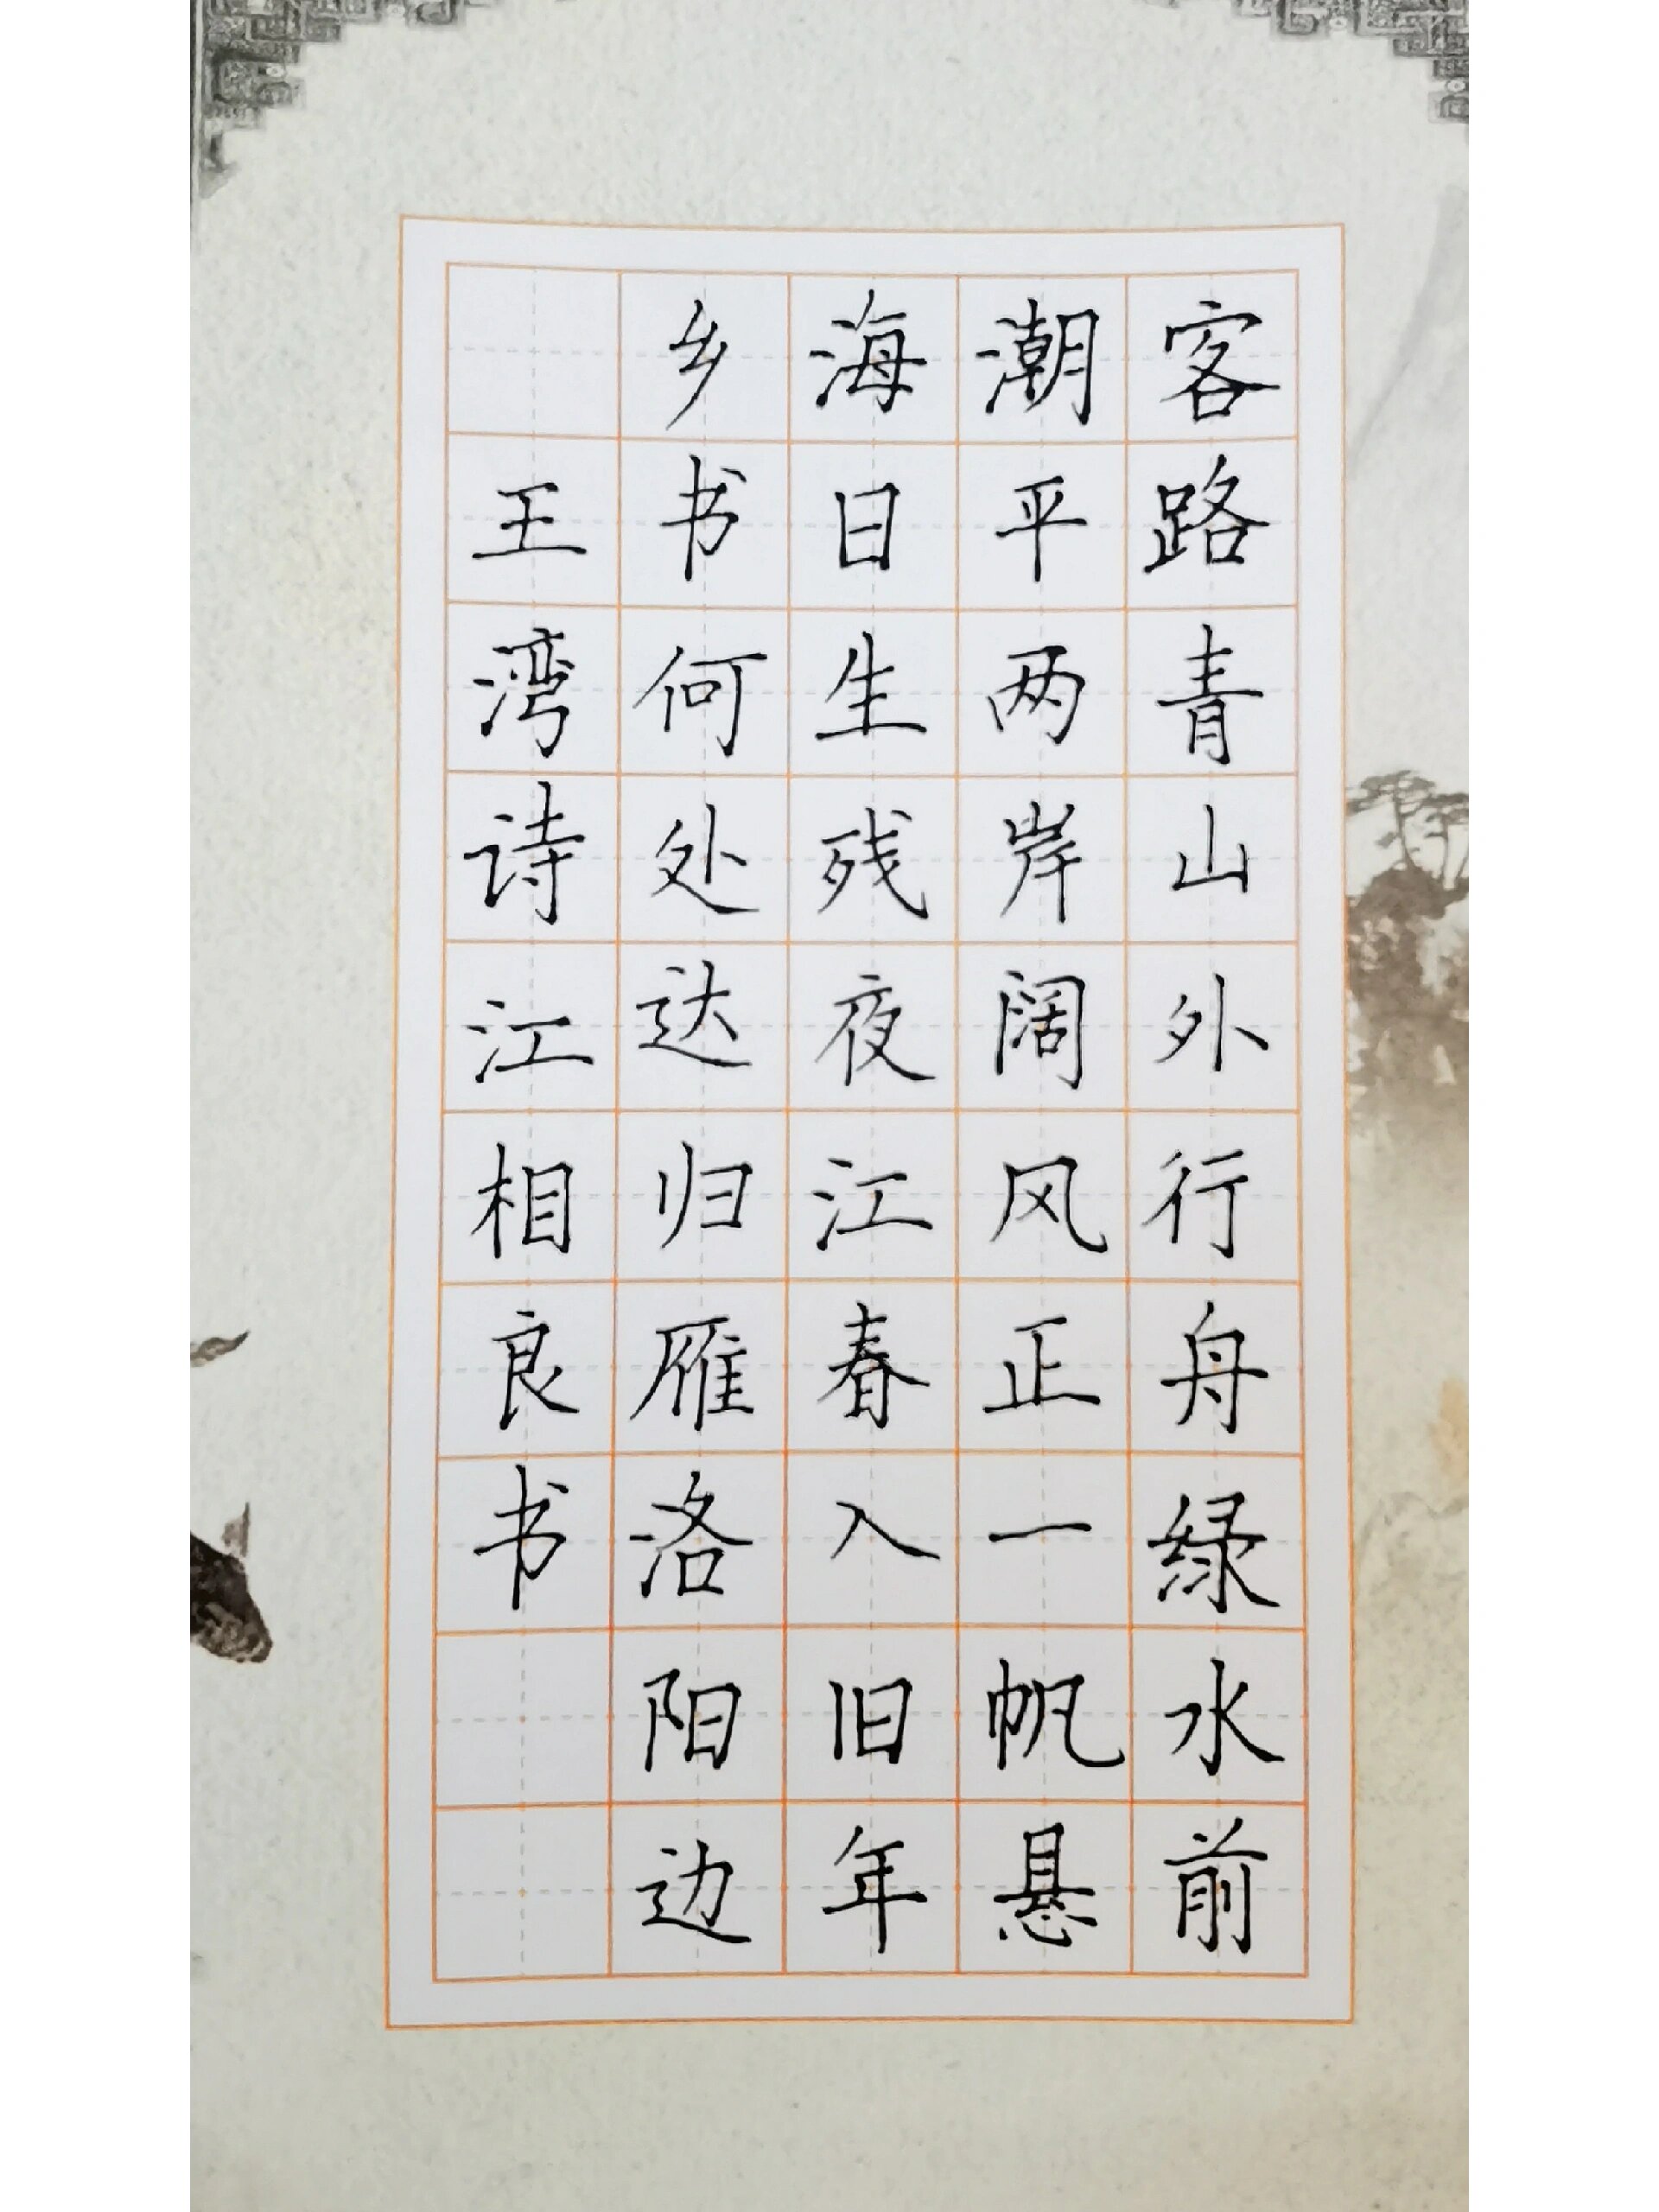 客路青山外行舟绿水前
潮平两岸阔风正一帆悬
海日生残夜江春入旧年
乡书何处达归雁洛阳边
王湾诗江相良书